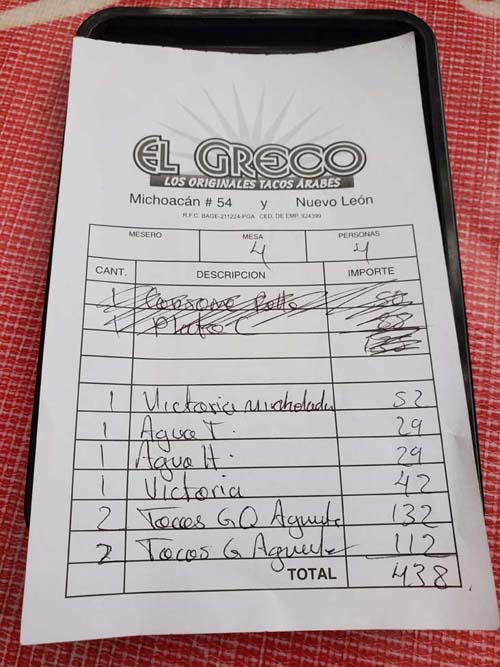 EL GRECO
LOS ORIGINALES TACOS ÁRABES
Michoacán # 54 y Nuevo León
R.F.C. BAGE-211224-PGA. CED. DE EMP. 924399
MESERO MESA PERSONAS
4 4
CANT. DESCRIPCION IMPORTE
1 Consome Pollo
1 Plato C
1 Victoria michelada 52
1 Agua T. 29
1 Agua H. 29
1 Victoria 42
2 Tacos GQ 132
2 Tacos G 112
TOTAL 438